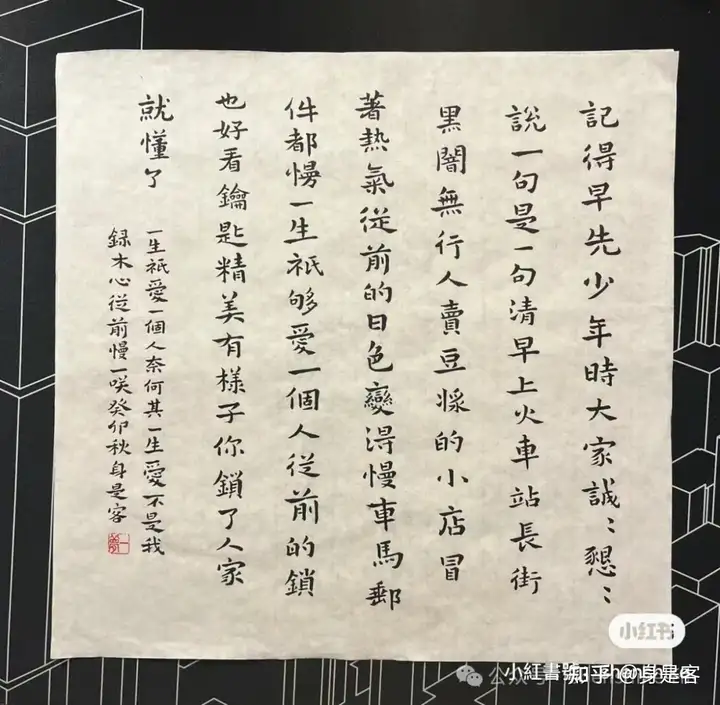 記得早先少年時大家誠：懇：
說一句是一句清早上火車站長街
黑闇無行人賣豆漿的小店冒
著熱氣從前的日色變得慢車馬郵
件都慢一生祇够愛一個人從前的鎖
也好看鑰匙精美有樣子你鎖了人家
就懂了
一生祇愛一個人奈何其一生愛不是我
録木心從前慢一咲癸卯秋身是客
小红书
小紅書號:
知乎 @身是客